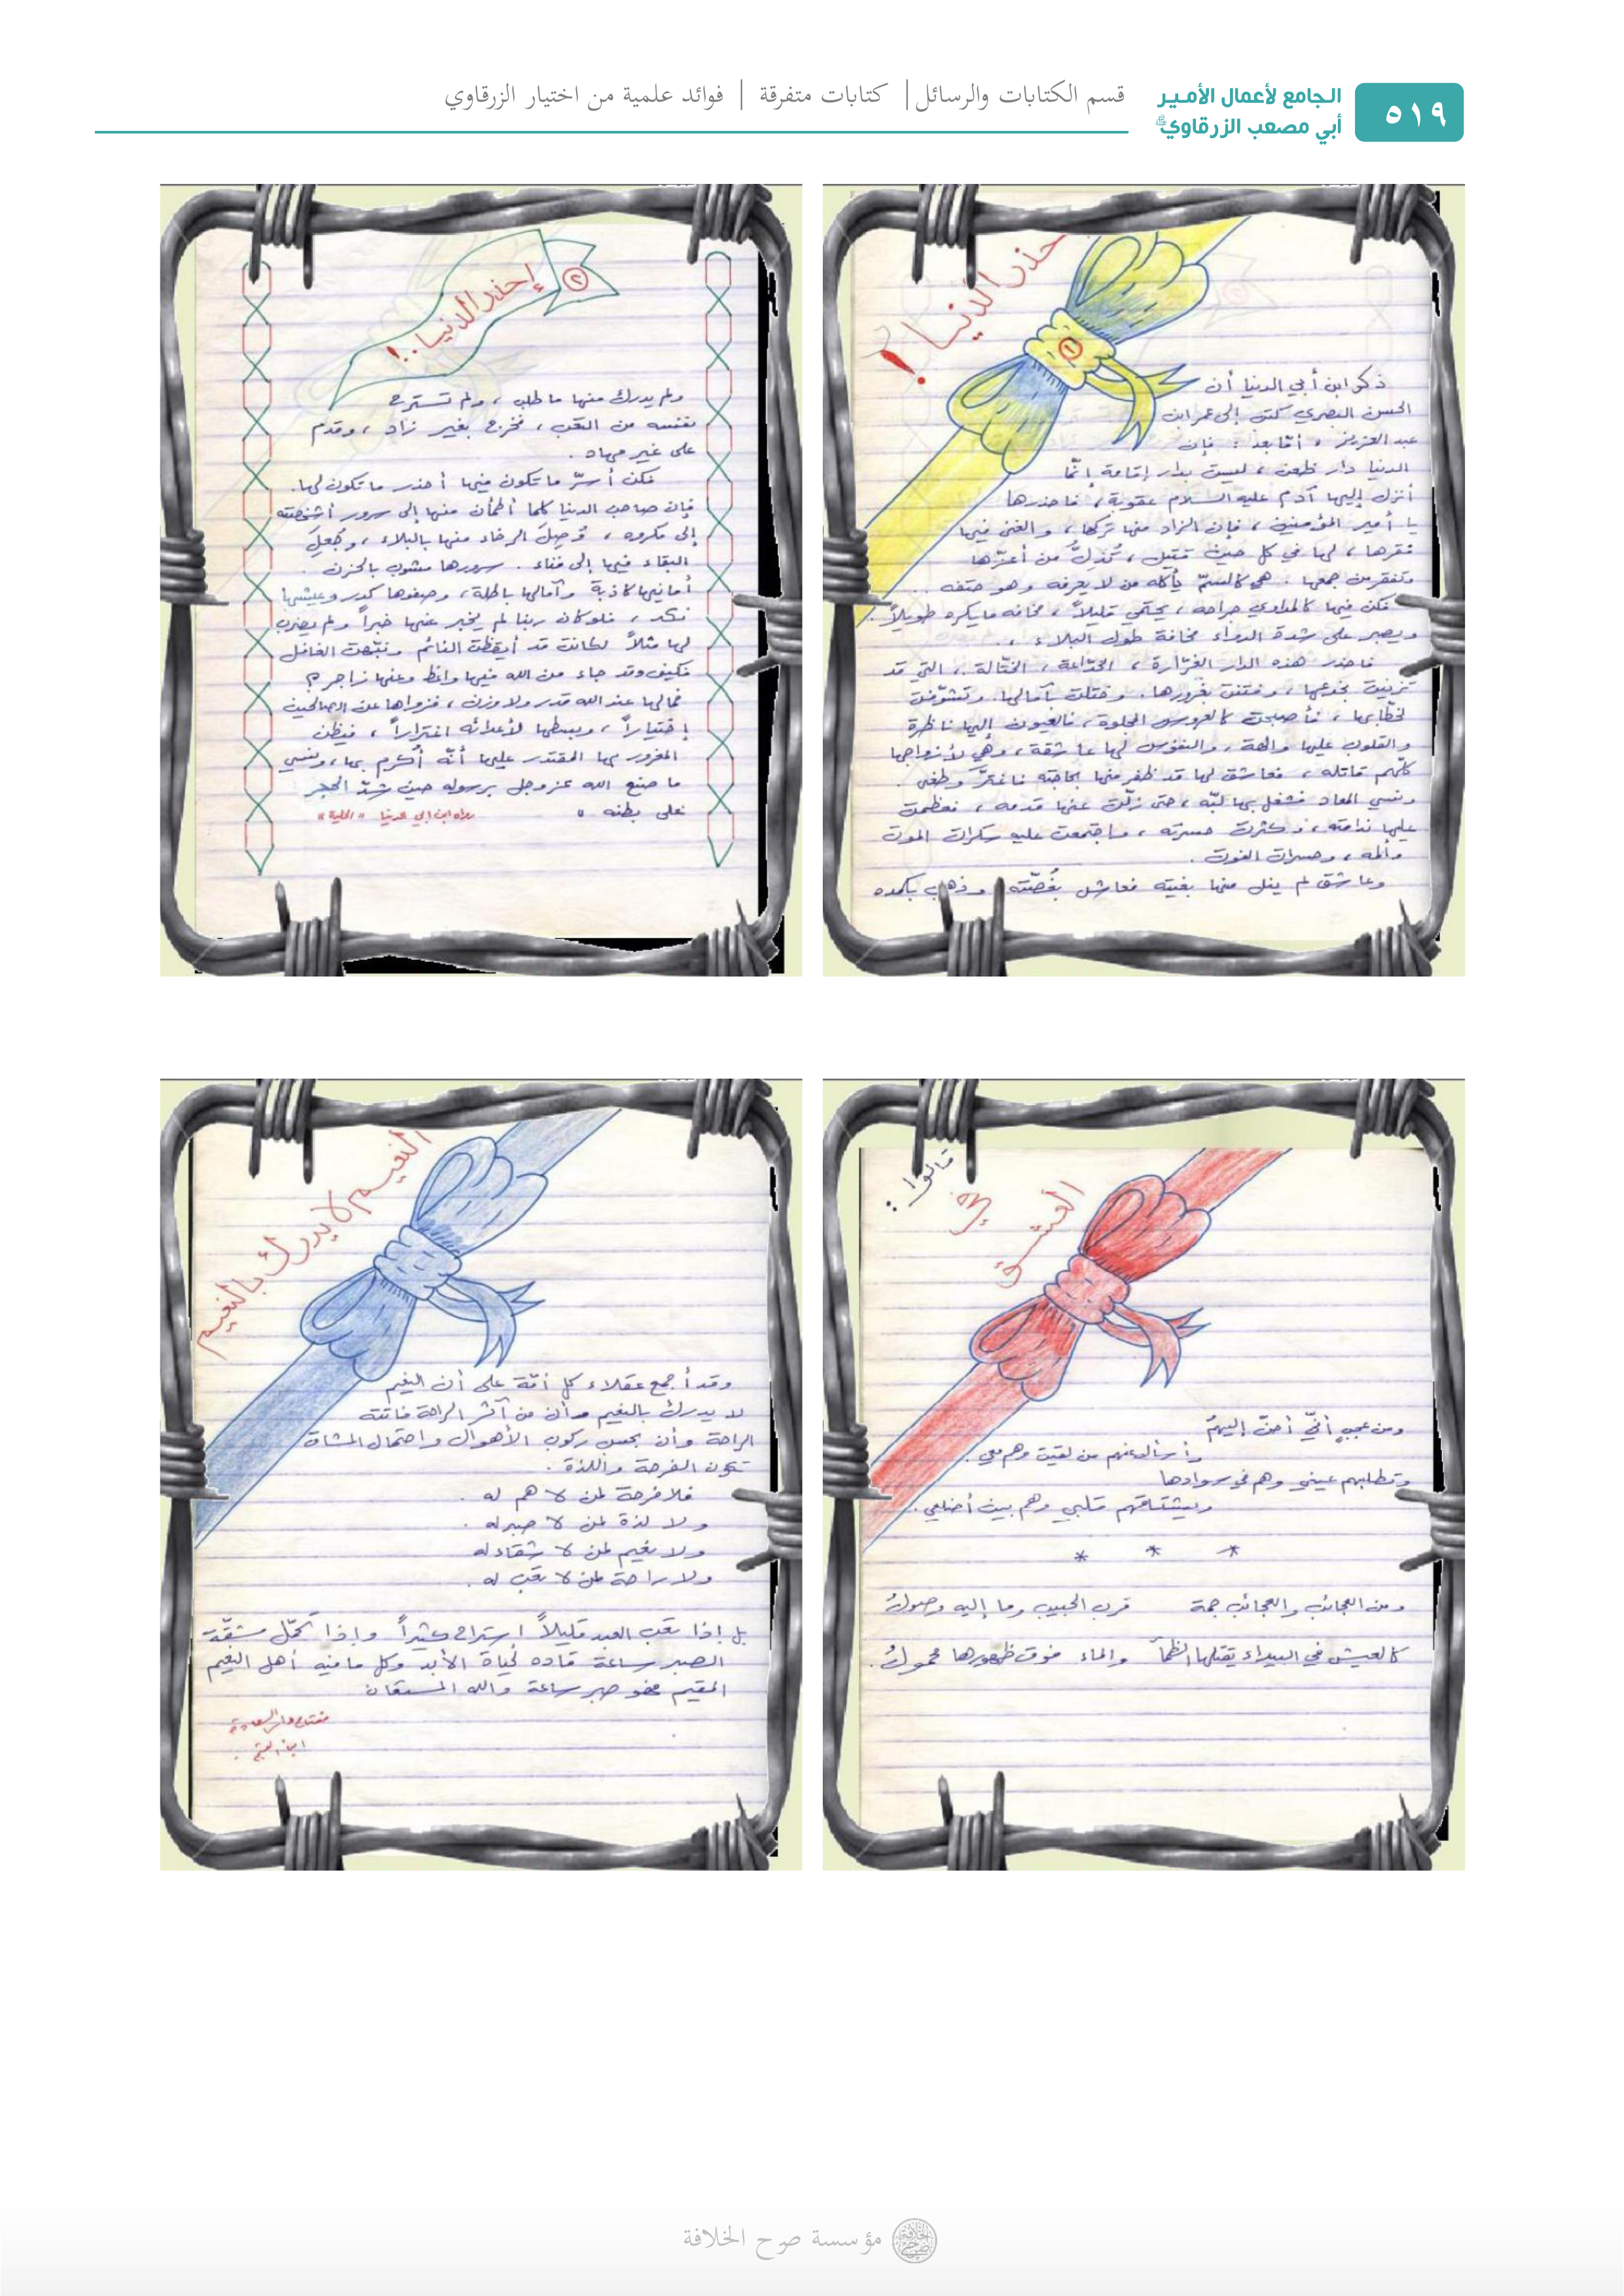 ٥١٩
الجامع لأعمال الأمير
أبي مصعب الزرقاوي
قسم الكتابات والرسائل | كتابات متفرقة | فوائد علمية من اختيار الزرقاوي
حذر الدنيا !
١
ذكر ابن أبي الدنيا أن
الحسن البصري كتب إلى عمر ابن
عبد العزيز ، أمّا بعد : فإن
الدنيا دار ظعن ، ليست بدار إقامة إنّما
أنزل إليها آدم عليه السلام عقوبة ، فاحذرها
يا أمير المؤمنين ، فإن الزاد منها تركها ، والغنى فيها
فقرها ، لها في كل حين قتيل ، تُذِلُّ من أعزّها
وتفقر من جمعها . هي كالسمّ يأكله من لا يعرفه وهو حتفه .
فكن فيها كالمداوي جراحه ، يحتمي قليلاً ، مخافة ما يكره طويلاً .
ويصبر على شدة الدواء مخافة طول البلاء .
فاحذر هذه الدار الغرّارة ، الخدّاعة ، الختّالة ، التي قد
تزينت بخدعها ، وفتنت بغرورها ، وختلت بآمالها وتشوّفت
لخطّابها ، فأصبحت كالعروس المجلوة ، فالعيون إليها ناظرة
والقلوب عليها والهة ، والنفوس لها عاشقة ، وهي لأزواجها
كلّهم قاتله ، فعاشق لها قد ظفر منها بحاجته فاغترّ وطغى
ونسي المعاد فشغل بها لبّه ، حتى زلّت عنها قدمه ، فعظمت
عليها ندامته ، وكثرت حسرته ، واجتمعت عليه سكرات الموت
وألمه ، وحسرات الفوت .
وعاشق لم ينل منها بغيته فعاش بغُصّته وذهب بكمده
٢
إحذر الدنيا ..!
ولم يدرك منها ما طلب ، ولم تسترح
نفسه من التعب ، فخرج بغير زاد ، وقدم
على غير مهاد .
فكن أسرّ ما تكون فيها أحذر ما تكون لها.
فإن صاحب الدنيا كلما أطمأن منها إلى سرور أشخصته
إلى مكروه ، وُصِلَ الرخاء منها بالبلاء ، وجُعِلَ
البقاء فيها إلى فناء . سرورها مشوب بالحزن .
أمانيها كاذبة وآمالها باطلة ، وصفوها كدر وعيشها
نكد ، فلو كان ربنا لم يخبر عنها خبراً ولم يضرب
لها مثلاً لكانت قد أيقظت النائم ونبّهت الغافل
فكيف وقد جاء من الله فيها واعظ وعنها زاجر ؟
فما لها عند الله قدر ولا وزن ، فزواها عن الصالحين
إختياراً ، وبسطها لأعدائه اغتراراً ، فيظن
المغرور بها المقتدر عليها أنّه أُكرم بها ، ونسي
ما صنع الله عز وجل برسوله حين شدّ الحجر
على بطنه .
رواه ابن ابي الدنيا " الحلية "
قالوا :
في
العشق
ومن عجبٍ أنّي أحنّ إليهمُ
وأسأل عنهم من لقيت وهم معي .
وتطلبهم عيني وهم في سوادها
ويشتاقهم قلبي وهم بين أضلعي .
* * *
ومن العجائب والعجائب جمة قرب الحبيب وما إليه وصولُ
كالعيش في البيداء يقتلها الظمأ والماء فوق ظهورها محمولُ .
النعيم لا يدرك بالنعيم
وقد أجمع عقلاء كل أمّة على أن النعيم
لا يدرك بالنعيم وأن من آثر الراحة فاتته
الراحة وأن بحسب ركوب الأهوال واحتمال المشاق
تكون الفرحة واللذة .
فلا فرحة لمن لا هم له .
ولا لذة لمن لا صبر له .
ولا نعيم لمن لا شقاء له
ولا راحة لمن لا تعب له .
بل إذا تعب العبد قليلاً إستراح كثيراً وإذا تحمّل مشقّة
الصبر ساعة قاده لحياة الأبد وكل ما فيه أهل النعيم
المقيم فهو صبر ساعة والله المستعان
مفتاح دار السعادة
ابن القيم .
مؤسسة صرح الخلافة